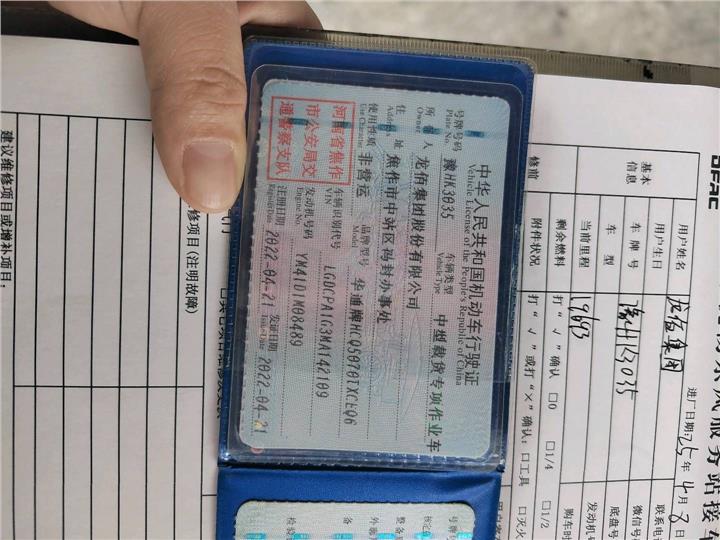 中华人民共和国机动车行驶证
Vehicle License of the People's Republic of China
号牌号码 豫HK3035 车辆类型 中型载货专项作业车
Plate No. Vehicle Type
所有人 龙佰集团股份有限公司
Owner
住址 焦作市中站区冯封办事处
Address
使用性质 非营运 品牌型号 华通牌HCQ5070TXCEQ6
Use Character Model
河南省焦作
市公安局交
通警察支队
车辆识别代号 LGDCPA1G3MA142109
VIN
发动机号码 YN41D1M08489
Engine No.
注册日期 2022-04-21 发证日期 2022-04-21
Register Date Issue Date
号牌号
核定载
整备
外廓
备
检验
基本
信息
用户姓名 龙佰集团 进厂日期 25年4月8日
用户生日 联系电
车牌号 微信号
车型 底盘号
当前里程 19693 发动机号
剩余燃料 打“√”确认 □0 □1/4 □1/2 购车时
修前
附件状况 打“√”或打“×”确认:□工具 □灭火
修项目(注明故障)
建议维修项目或增补项目: